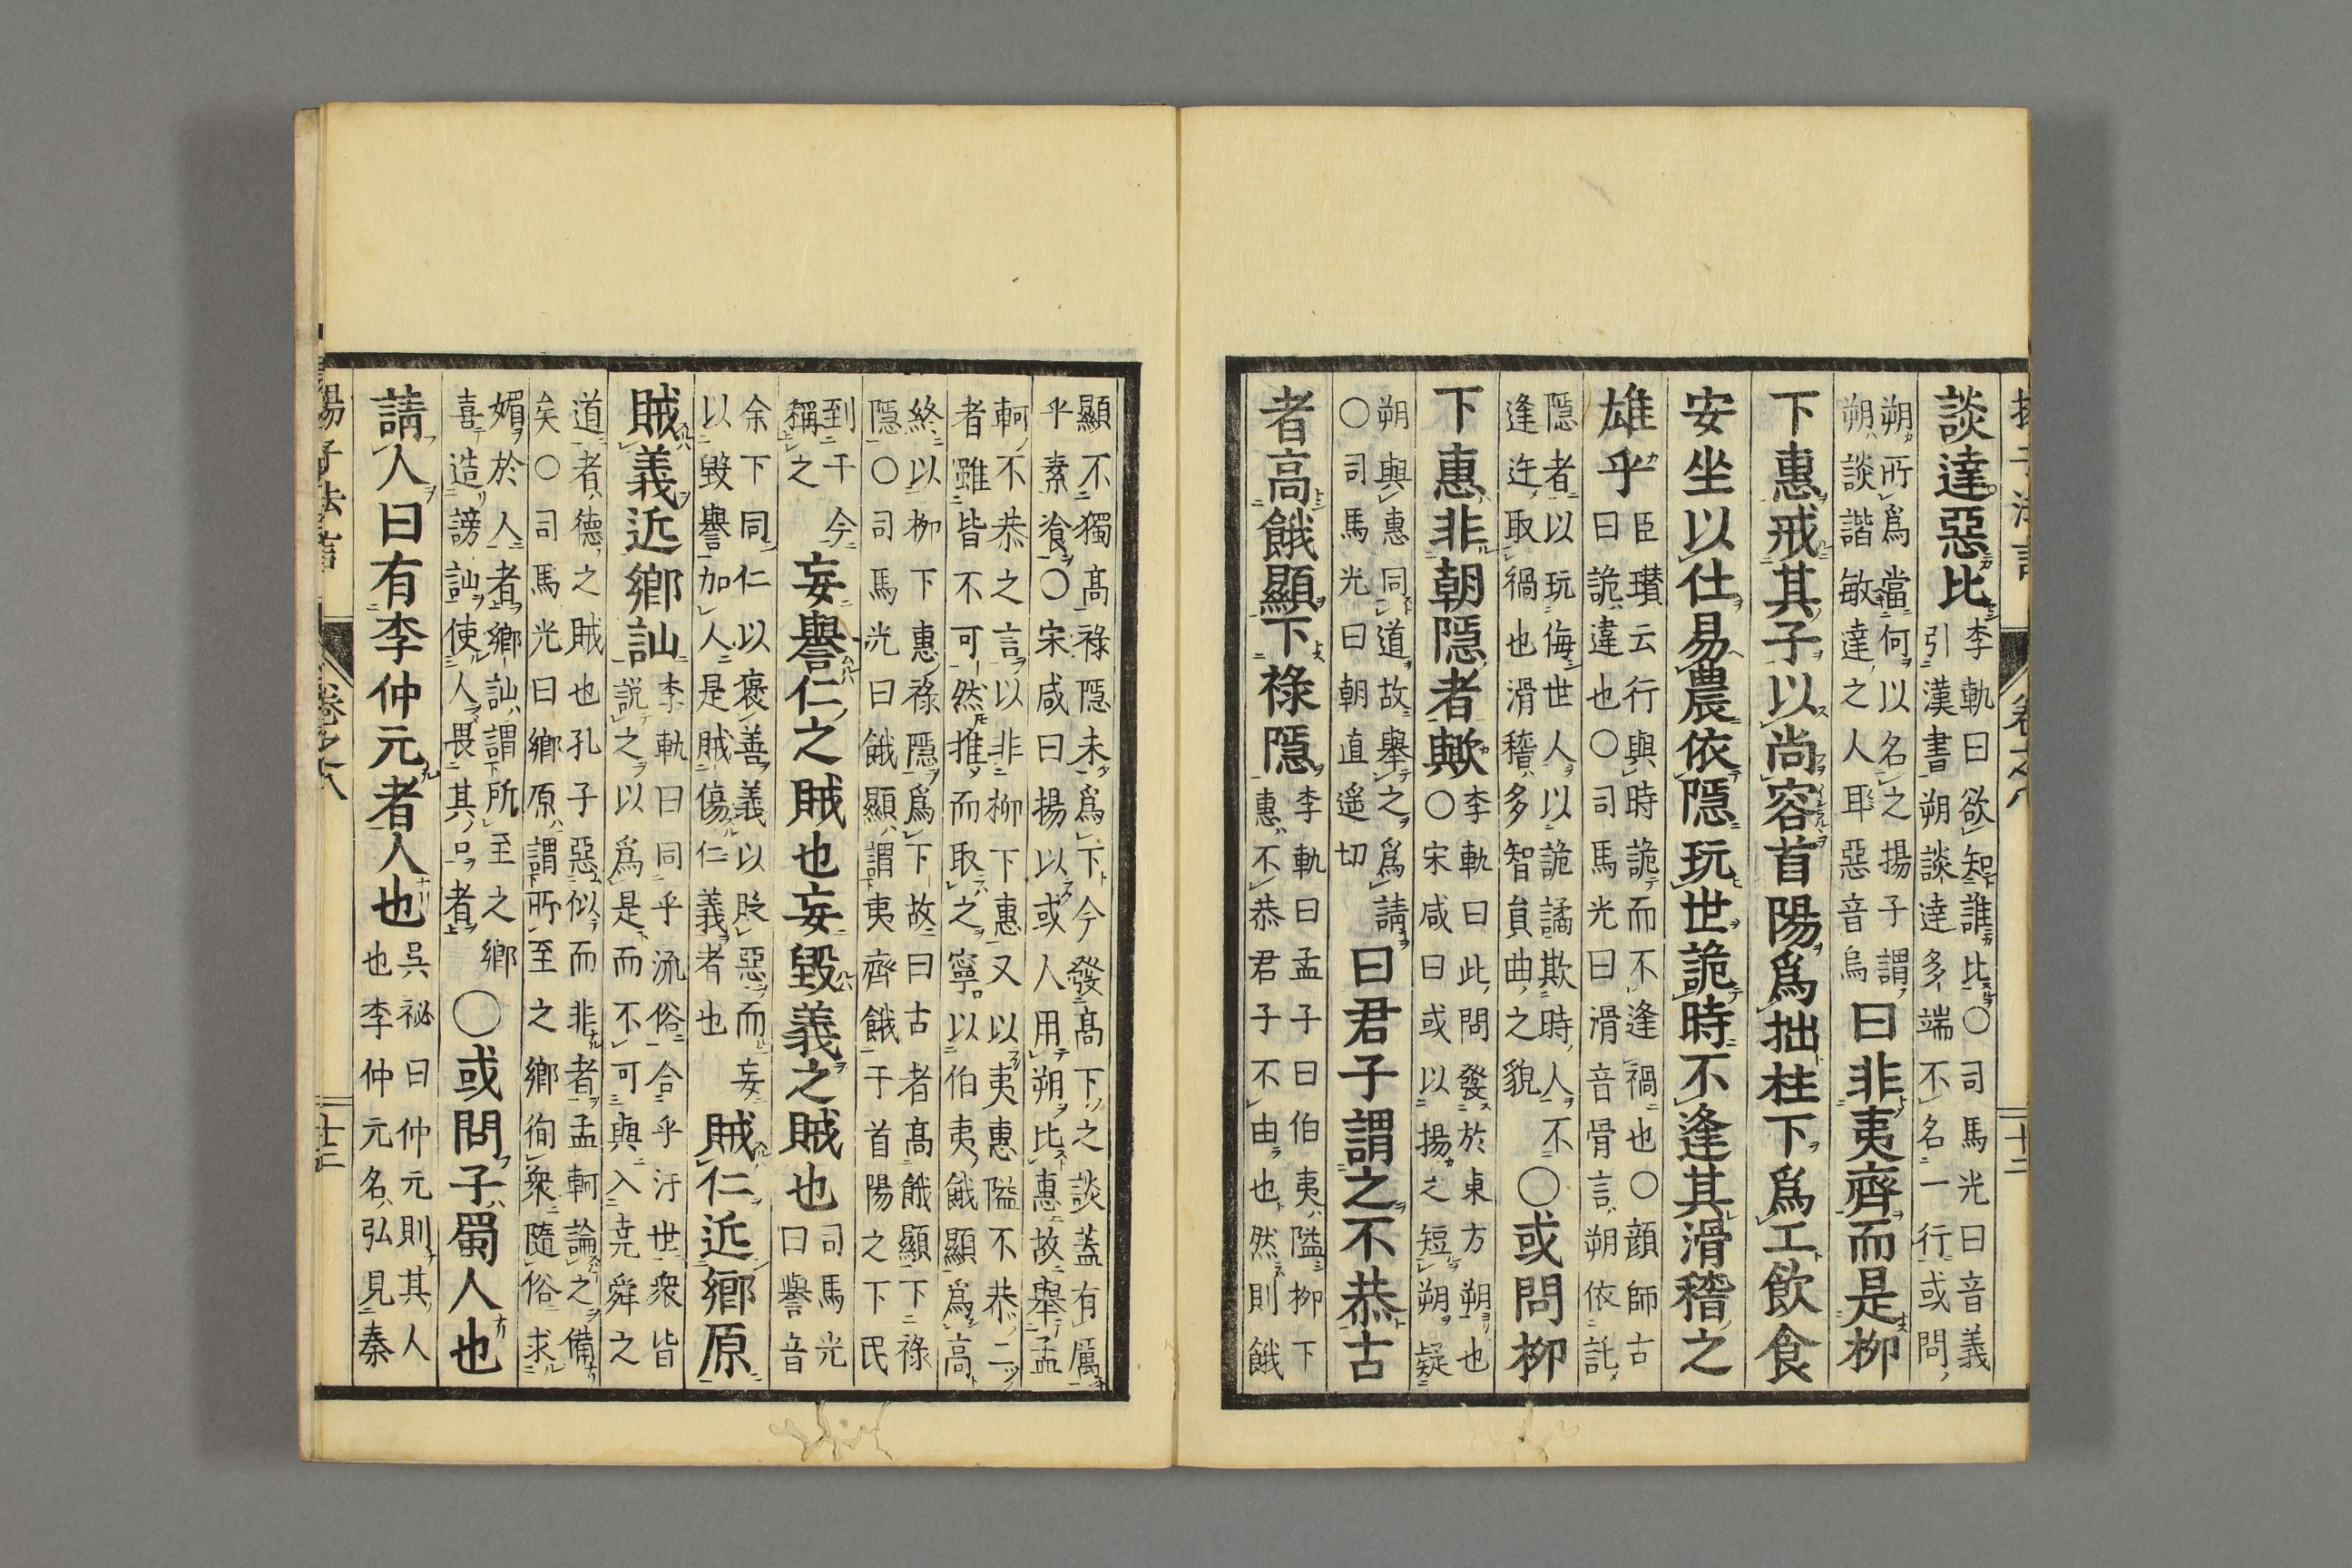 談達惡比李軌曰欲知誰比〇司馬光曰音義
引漢書朔談達多端不名一行或問
朔所爲當何以名之揚子謂
朔談諧敏達之人耳惡音烏
曰非夷齊而是柳
下惠戒其子以尚容首陽爲拙柱下爲工飲食
安坐以仕易農依隱玩世詭時不逢其滑稽之
雄乎臣瓉云行與時詭而不逢禍也〇顔師古
曰詭違也〇司馬光曰滑音骨言朔依託
隱者以玩侮世人以詭譎欺時人不
逢迕取禍也滑稽多智貟曲之貌
〇或問柳
下惠非朝隱者歟李軌曰此問發於東方朔也
〇宋咸曰或以揚之短朔疑
朔與惠同道故舉之爲請
〇司馬光曰朝直遥切
曰君子謂之不恭古
者高餓顯下祿隱李軌曰孟子曰伯夷隘柳下
惠不恭君子不由也然則餓
顯不獨髙祿隱未爲下今發髙下之談蓋有厲
乎素飡〇宋咸曰揚以或人用朔比惠故舉孟
軻不恭之言以非柳下惠又以夷惠隘不恭二
者雖皆不可然推而取之寧以伯夷餓顯爲高
終以柳下惠祿隱爲下故曰古者髙餓顯下祿
隱〇司馬光曰餓顯謂夷齊餓于首陽之下民
到于今
稱之
妄譽仁之賊也妄毀義之賊也司馬光
曰譽音
余下同仁以褒善義以貶惡而妄
以毀譽加人是賊傷仁義者也
賊仁近鄉原
賊義近鄉訕李軌曰同乎流俗合乎汙世衆皆
說之以爲是而不可與入堯舜之
道者德之賊也孔子惡似而非者孟軻論之備
矣〇司馬光曰鄉原謂所至之鄉徇衆隨俗求
媚於人者鄉訕謂所至之鄉
喜造謗訕使人畏其口者
〇或問子蜀人也
請人曰有李仲元者人也吳祕曰仲元則其人
也李仲元名弘見秦